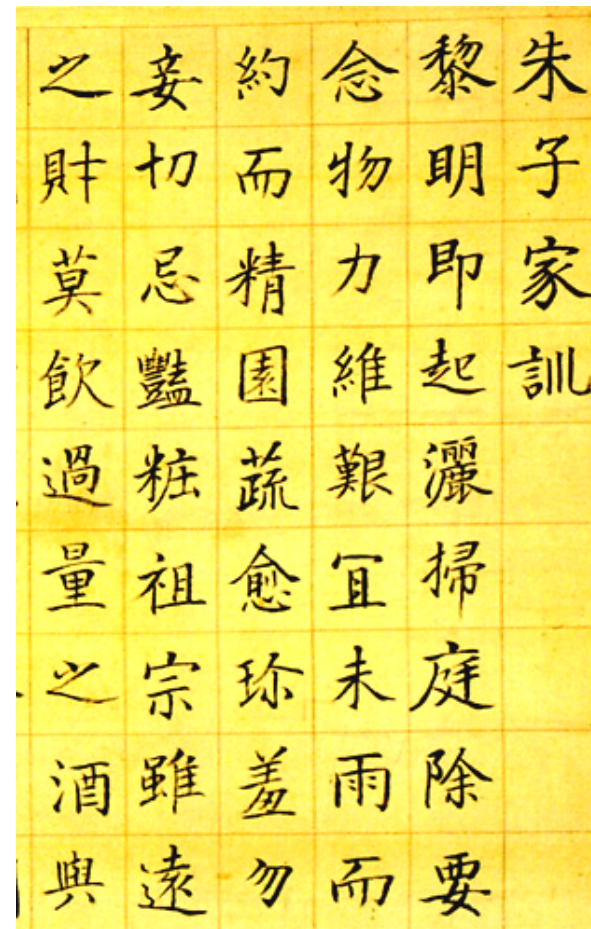 朱子家訓
黎明即起灑掃庭除要
念物力維艱冝未雨而
約而精園蔬愈珎羞勿
妾切忌豔粧祖宗雖遠
之財莫飲過量之酒與